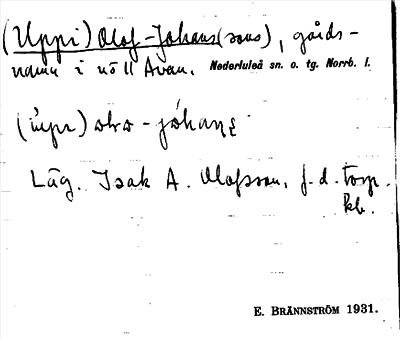 (Uppi) Olof-Johans(sons), gårds-
namn i nö ll Avan. Nederluleå sn. o. tg. Norrb. l.
Låg. Isak A. Olofsson, f. d. torp.
kb.
E. BRÄNNSTRÖM 1931.